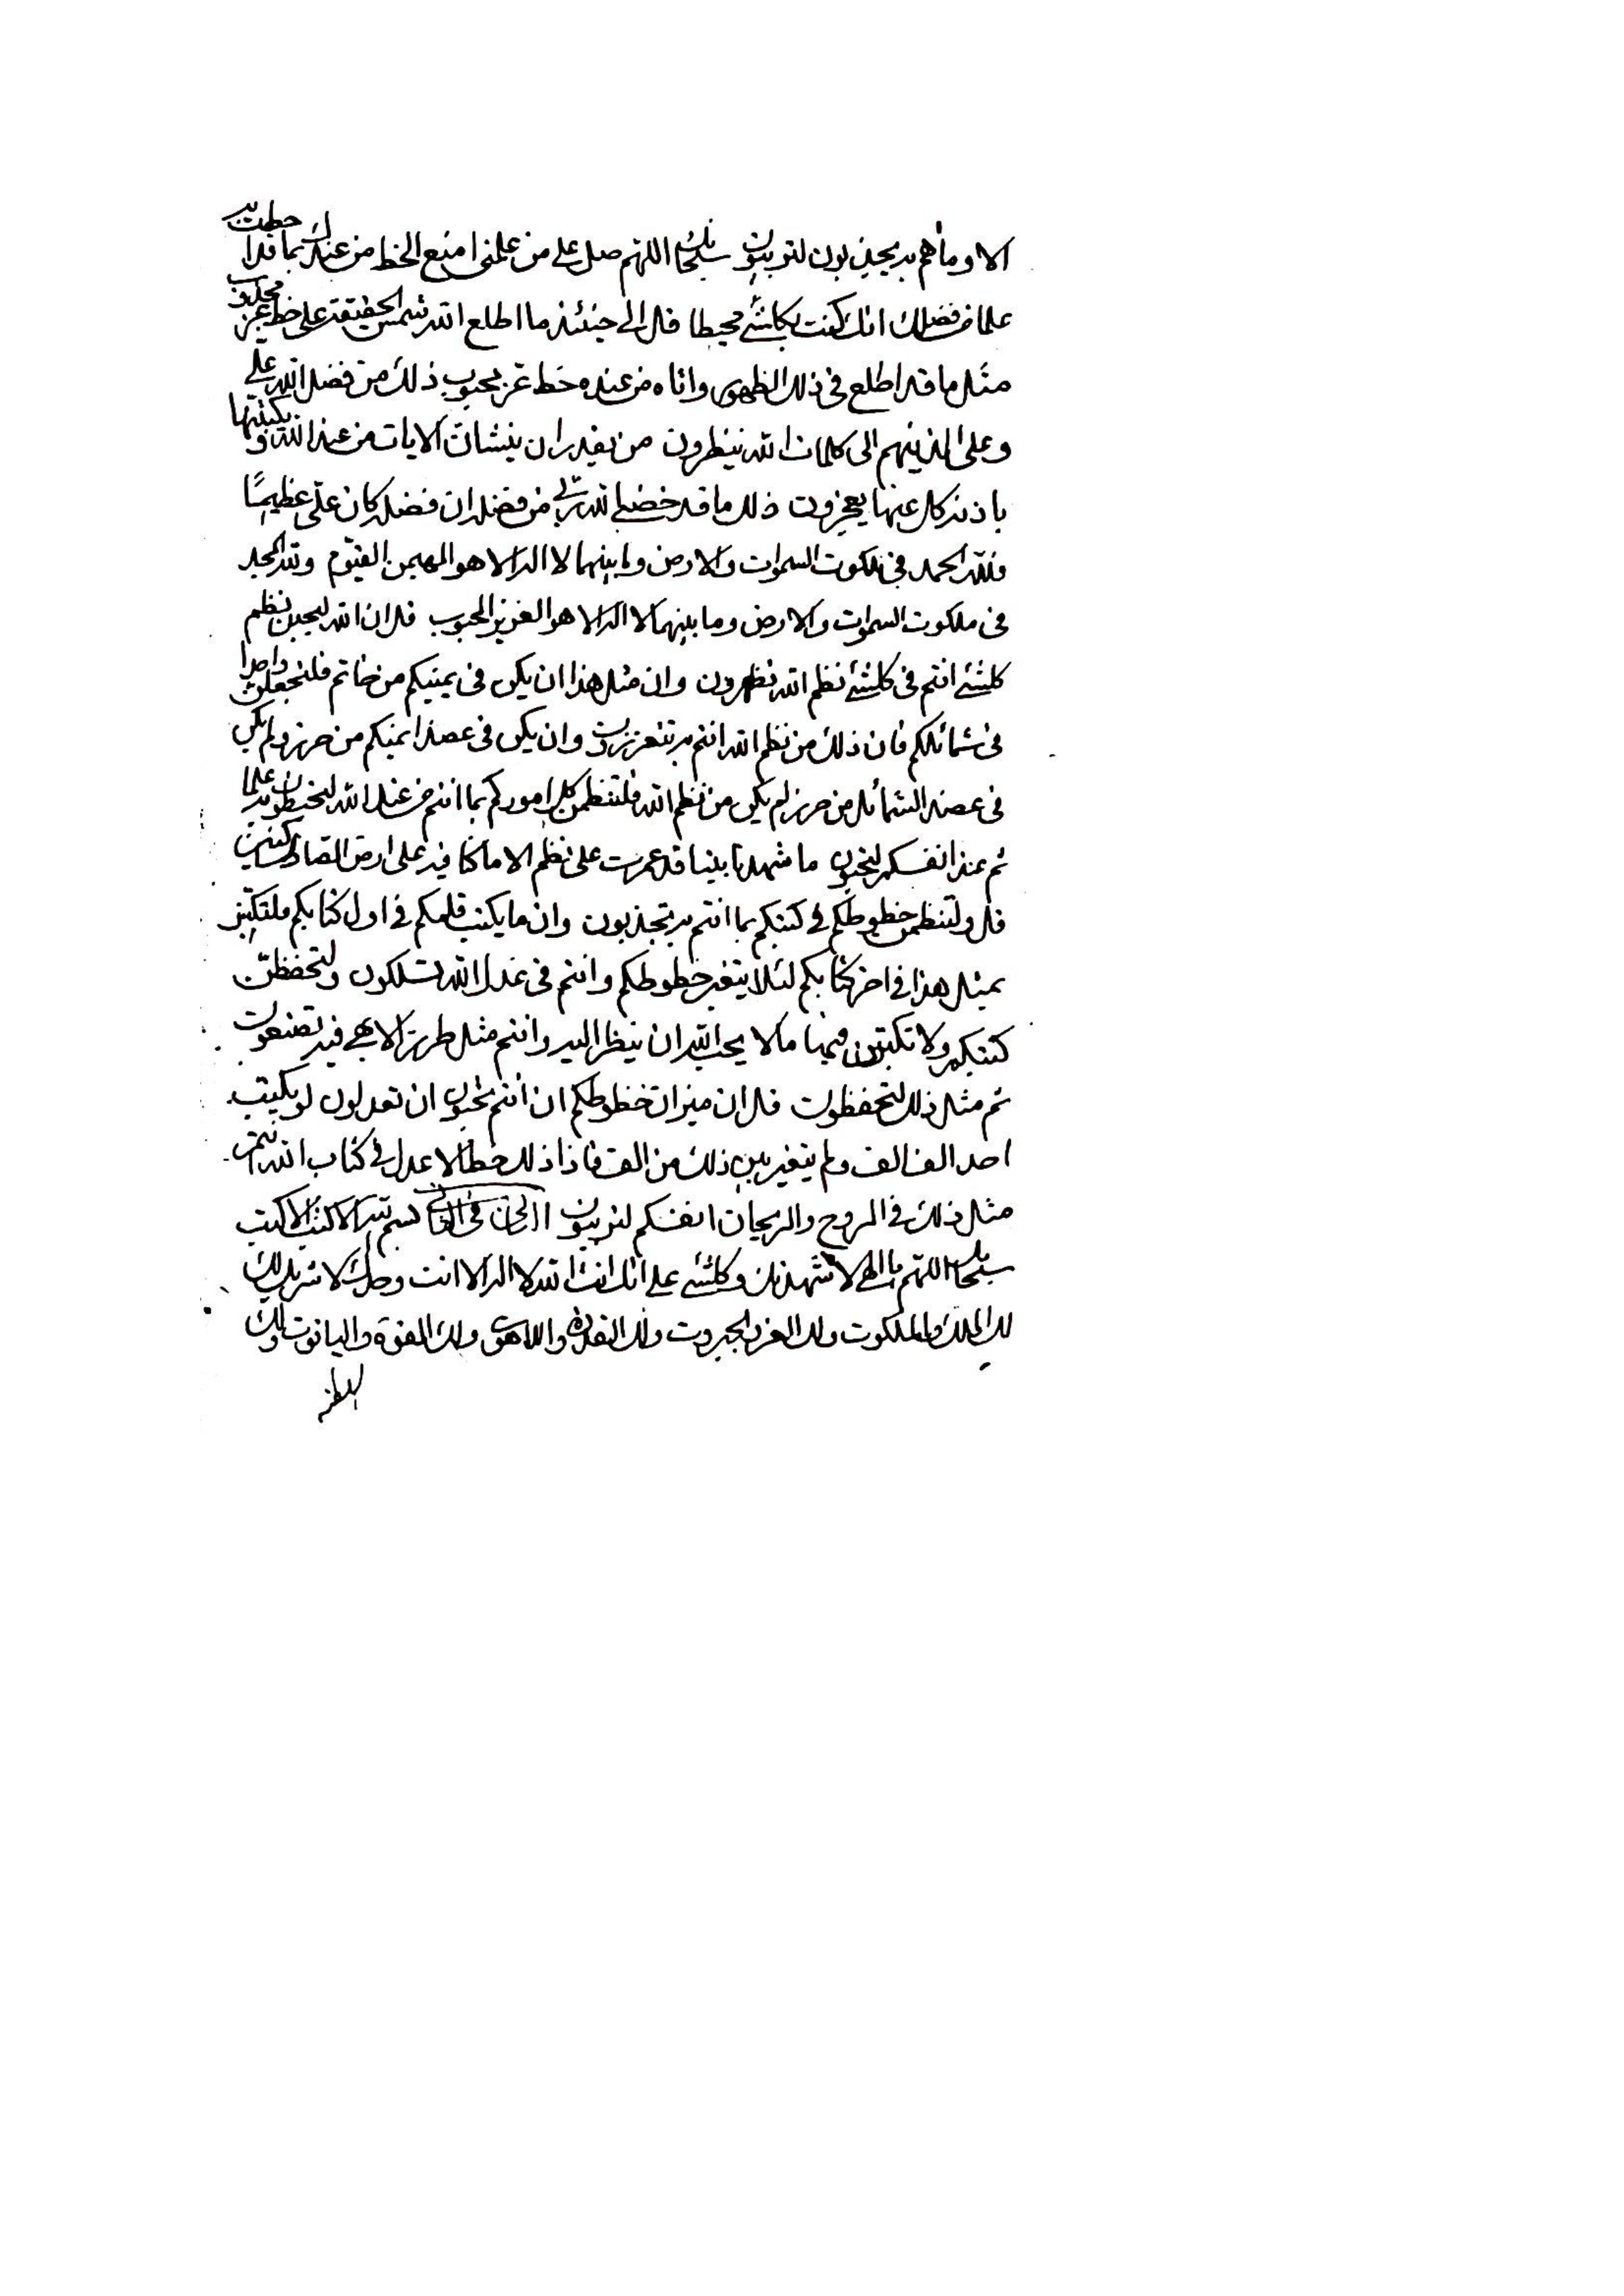 الا وما هم به يجذبون لتربيون سبحانك اللهم صل على من علمنى امنع الخط من عندك بما قد احطت به
علما من فضلك انك كنت بكلشئ محيطا قل الى حينئذ ما اطلع الله شمس الحقيقة على خط عز مجذوب
مثل ما قد اطلع فى ذلك الظهور واتاه من عنده خط عز محبوب ذلك من فضل الله على
وعلى الذينهم الى كلمات الله ينظرون من يقدر ان ينشات الايات من عند الله و يكتبنها
باذنه كل عنها يعجزون ذلك ما قد خصنى الله ربى من فضله ان فضله كان على عظيما
فلله الحمد فى ملكوت السموات والارض وما بينهما لا اله الا هو المهيمن القيوم ولله المجد
فى ملكوت السموات والارض وما بينهما لا اله الا هو العزيز المحبوب قل ان الله ليحبن نظم
كلشئ انتم فى كلشئ نظم الله تظهرون وان مثل هذا ان يكن فى يمينكم من خاتم فلتجعلن واحدا
فى شمائلكم فان ذلك من نظم الله انتم به تتعززون وان يكن فى عضد ايمنكم من حرز ولم يكن
فى عضد الشمائل من حرز لم يكن من نظم الله فلتنظمن كل اموركم بما انتم من عند الله لتحيطون به علما
ثم عند انفسكم لتحبون ما شهدنا بيتا قد عمرت على نظم الا ما كنا فيه على ارض الصاد
قل ولتنظمن خطوطكم فى كتبكم بما انتم به تجذبون وان ما يكتب قلمكم فى اول كتابكم فلتكتبن
بمثل هذا فى اخر كتابكم لئلا يتغير خطوطكم وانتم فى عدل الله تسلكون ولتحفظن
كتبكم ولا تكتبون فيها ما لا يحب الله ان ينظر اليه وانتم مثل طرز الابهى فيه تصنعون
ثم مثل ذلك لتحفظون قل ان ميزان خطوطكم ان انتم تحبون ان تعدلون لو يكتب
احد الف الف ولم يتغير بين ذلك من الف فاذا ذلك خط الاعدل فى كتاب الله انتم
مثل ذلك فى الروح والريحان انفسكم لتربيون فى الثانى بسم الله الاكتب الاكتب
سبحانك اللهم يا الهى لاشهدنك وكلشئ على انك انت الله لا اله الا انت وحدك لا شريك لك
لك الملك والملكوت ولك العز والجبروت ولك القدرة واللاهوت ولك القوة والياقوت ولك
السلطنة